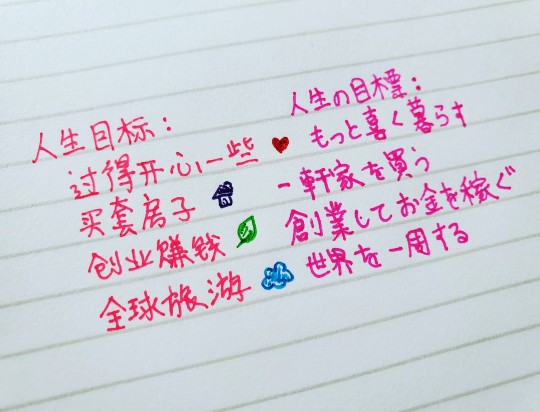 人生目标:
过得开心一些
买套房子
创业赚钱
全球旅游
人生の目標:
もっと喜く暮らす
一軒家を買う
創業してお金を稼ぐ
世界を一周する